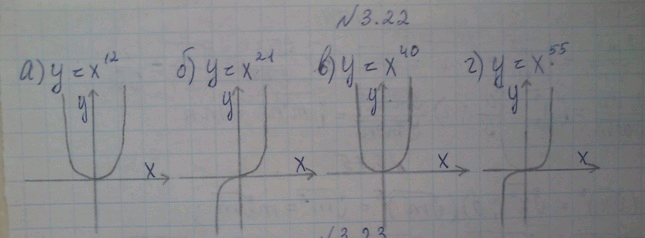 №3.22
а) y = x¹² б) y = x²¹ в) y = x⁴⁰ г) y = x⁵⁵
y y y y
x x x x
№3.23